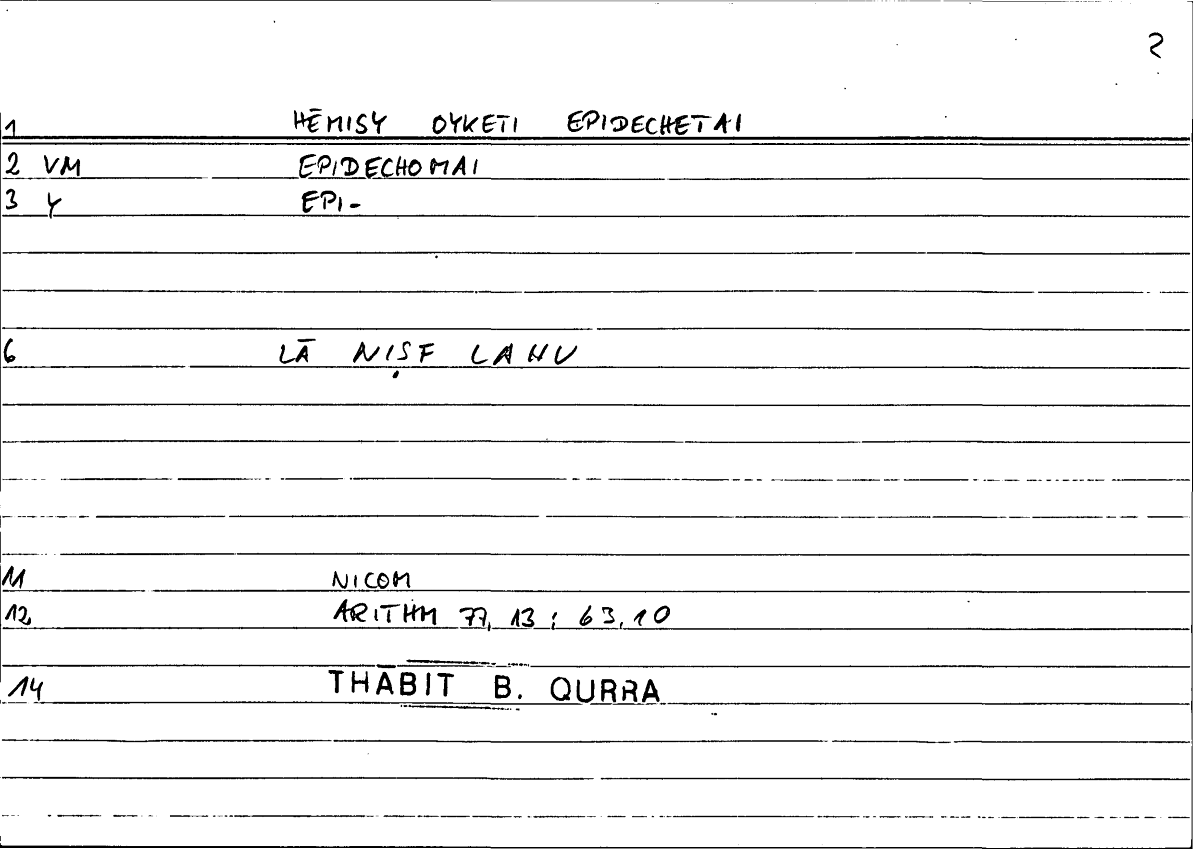 2
1 HĒMISY OYKETI EPIDECHETAI
2 VM EPIDECHOMAI
3 Y EPI-
6 LĀ NIṢF LAHU
11 NICOM
12 ARITHM 77, 13 : 63, 10
14 THĀBIT B. QURRA